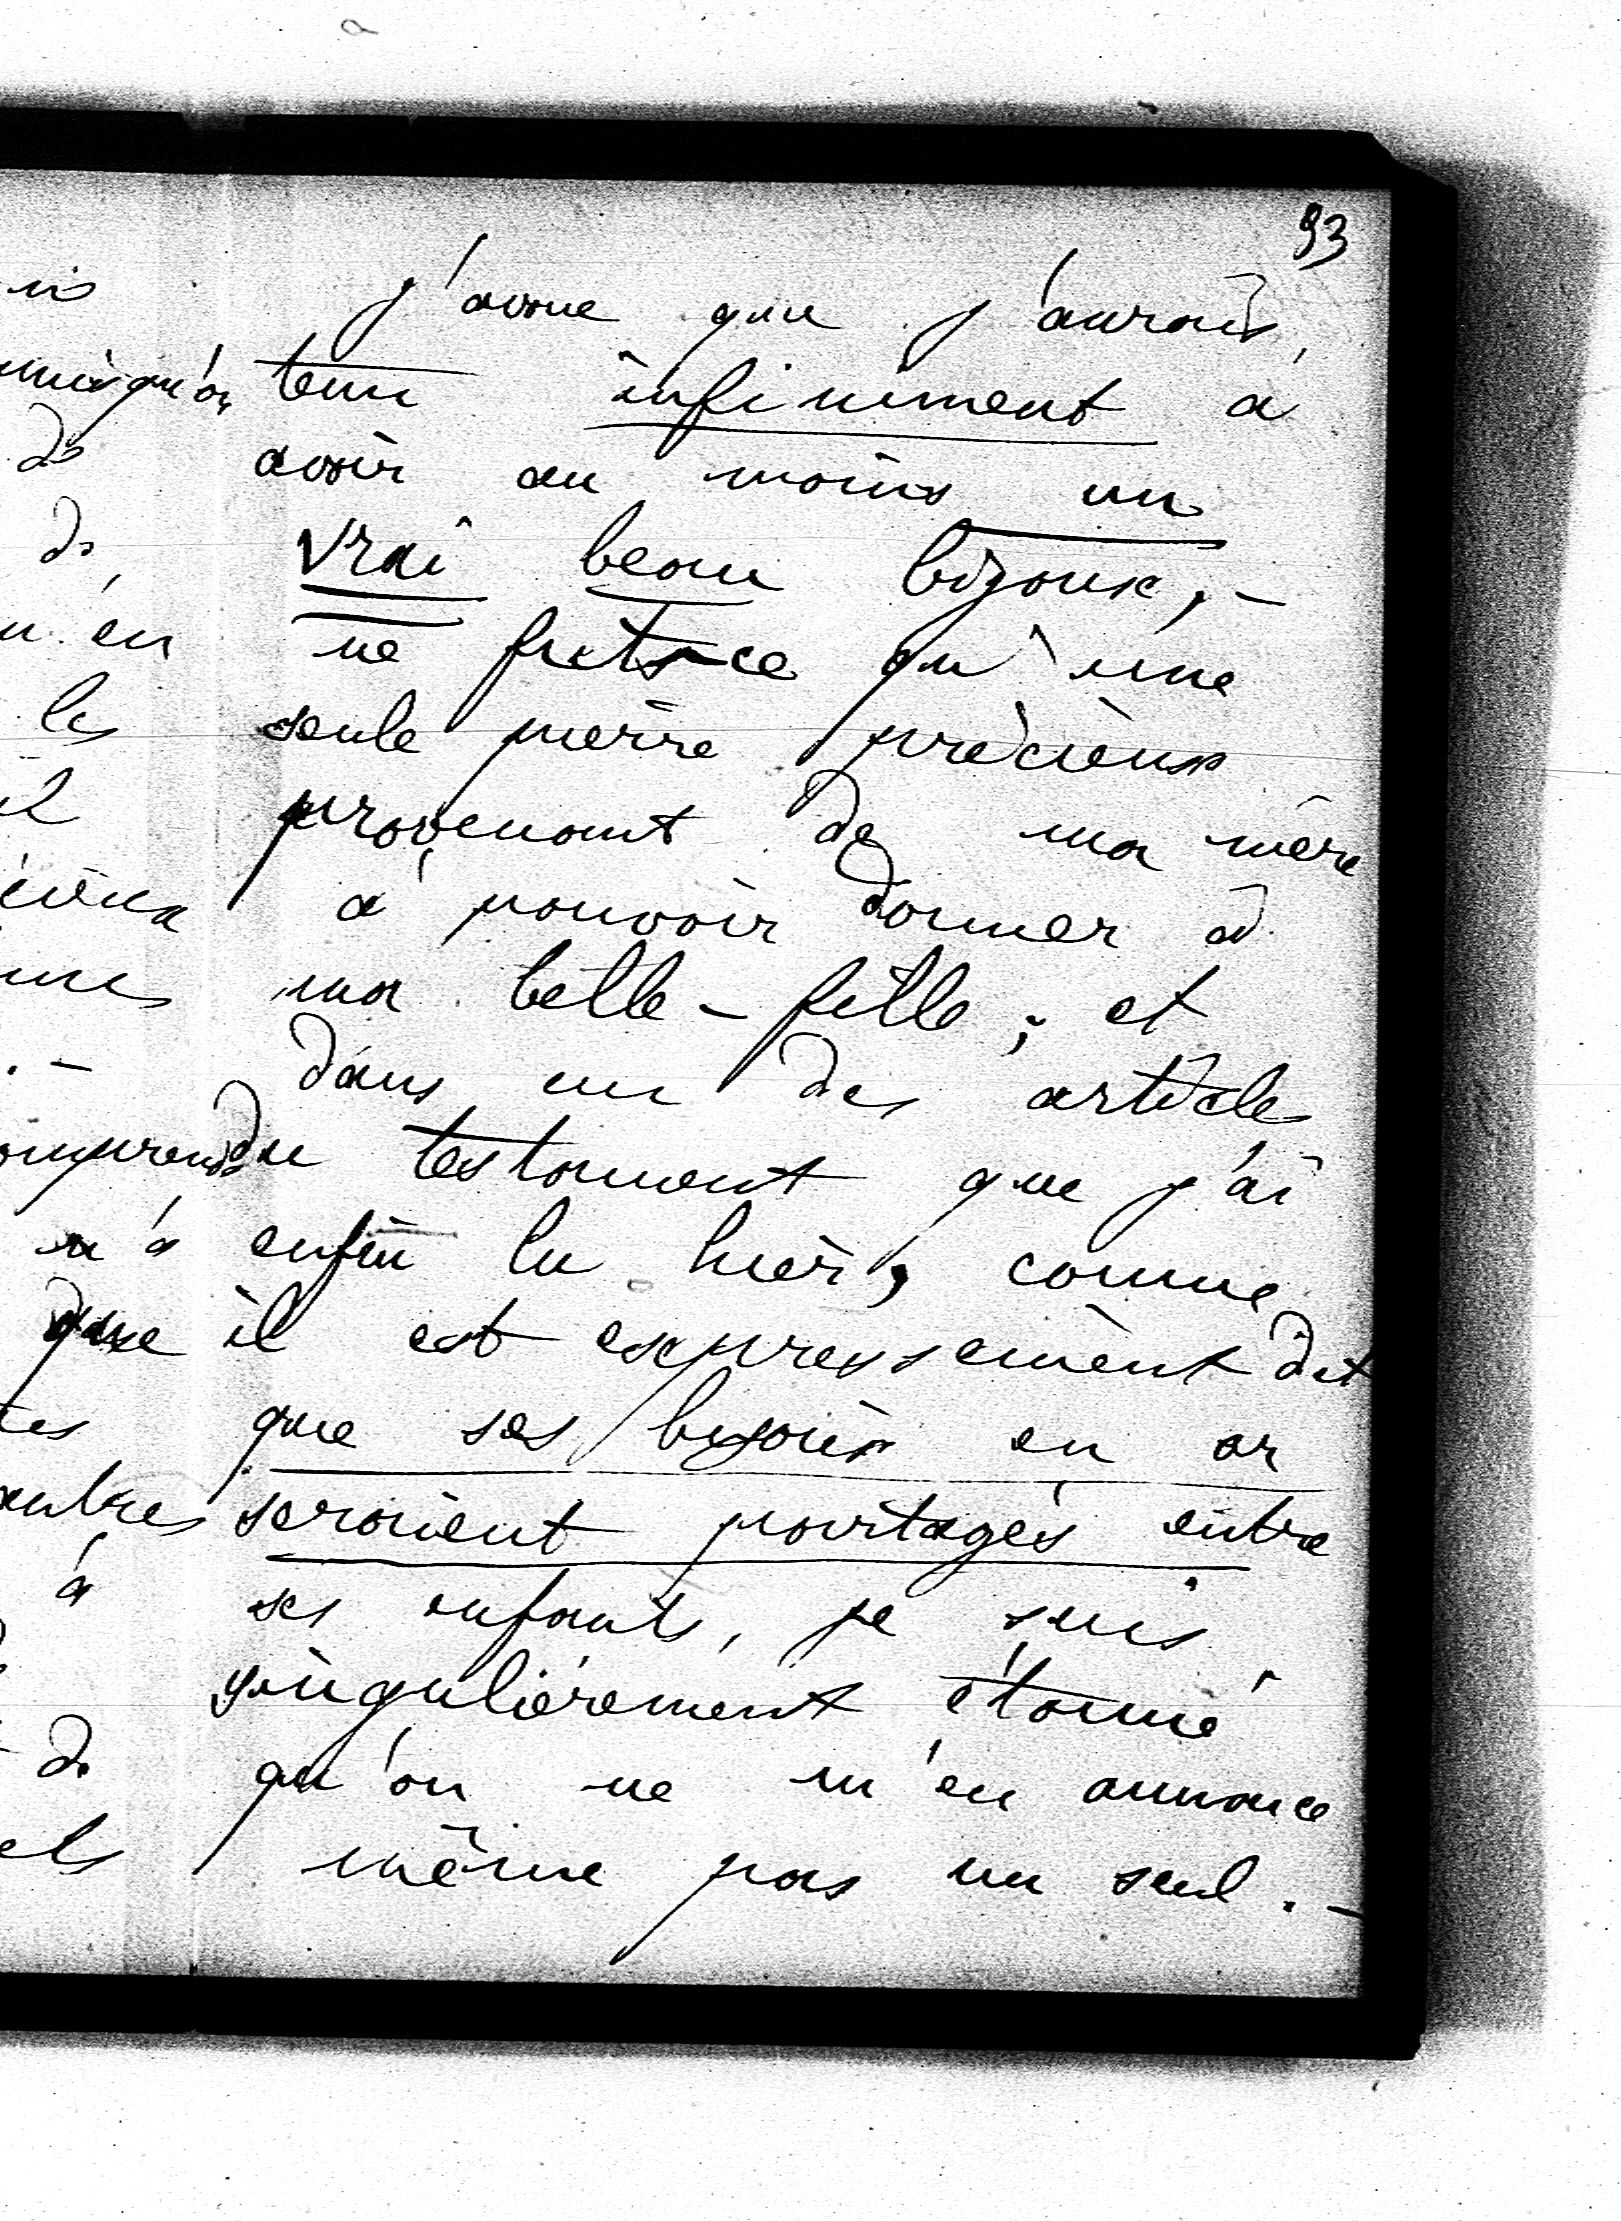 93
j'avoue que j'aurais
tenu infiniment à
avoir au moins un
vrai beau bijoux, -
ne fut-ce qu'une
seule pierre précieuse
provenant de ma mère
à pouvoir donner à
ma belle-fille ; et
dans un des articles
du testament que j'ai
enfin lu hier, comme
il est expressement dit
que ses bijoux en or
seraient partagés entre
ses enfants, je suis
singulièrement étonné
qu'on ne m'en annonce
même pas un seul. -
puisqu'on
de
de
en
les
il
.-
comprends
n'a
que
autres
à
de